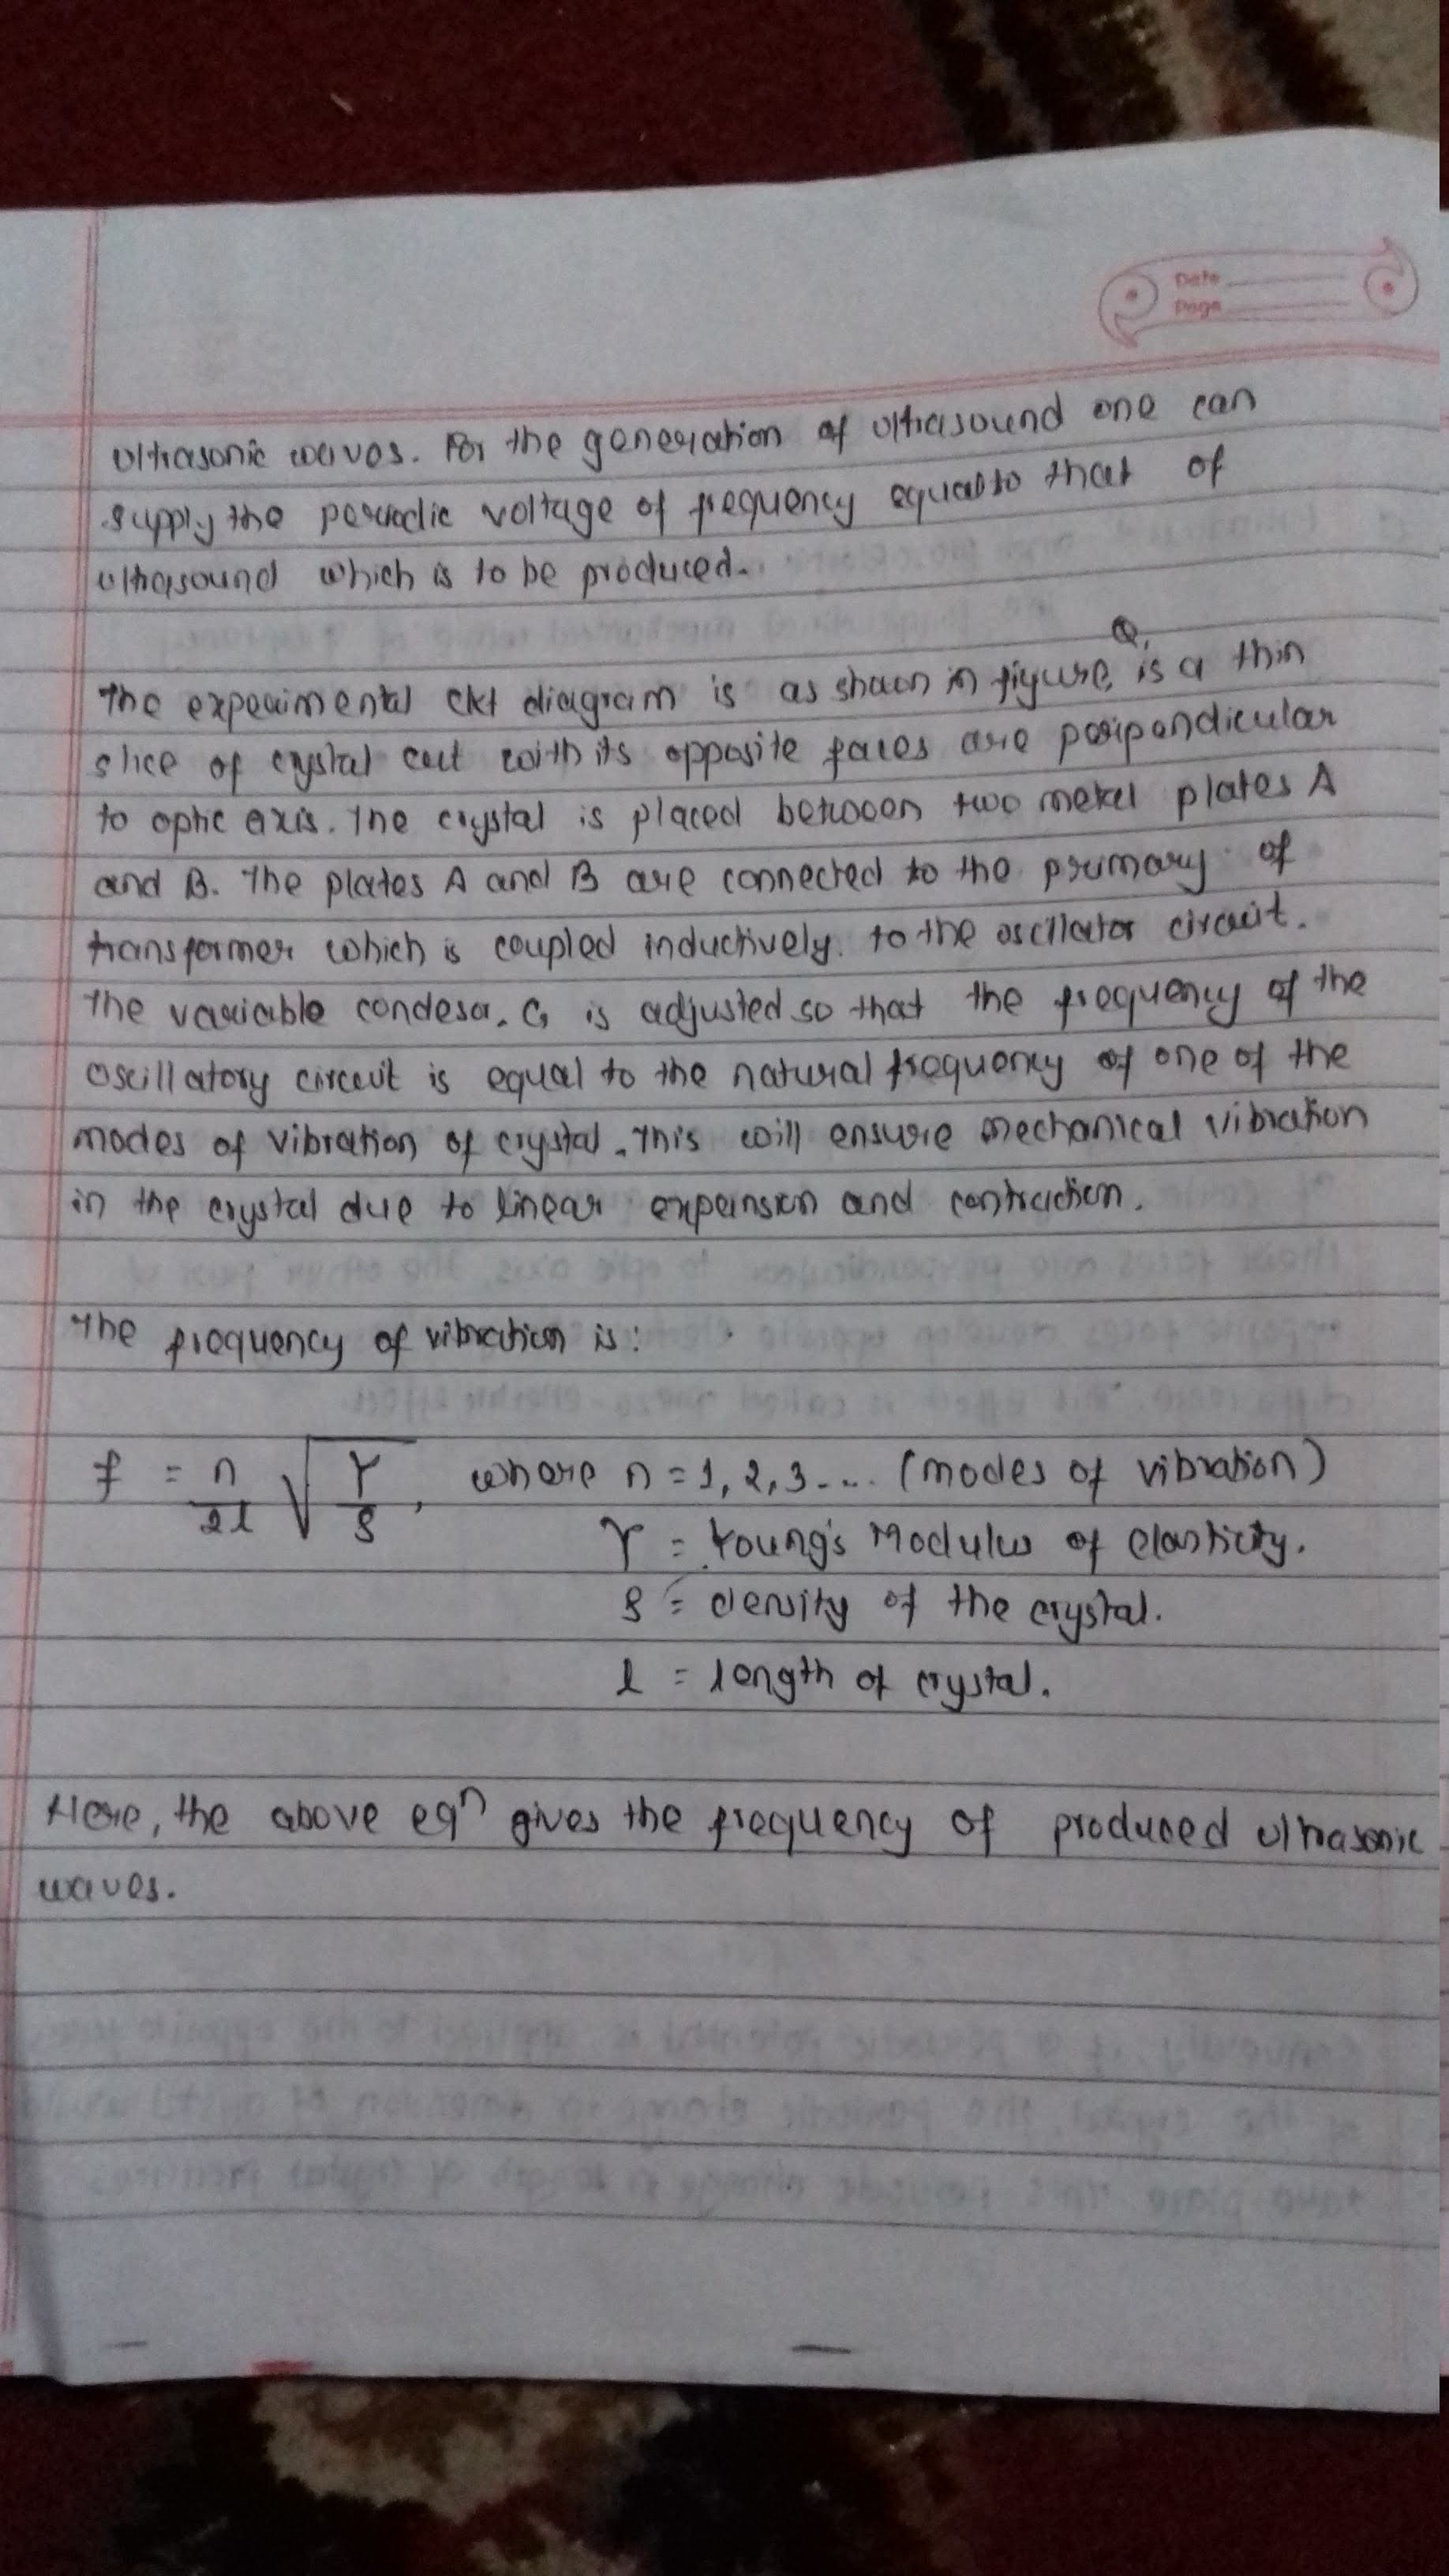 Date
Page
Ultrasonic waves. For the generation of ultrasound one can
supply the periodic voltage of frequency equal to that of
ultrasound which is to be produced.
Q,
The experimental ckt diagram is as shown in figure, is a thin
slice of crystal cut with its opposite faces are peripendicular
to optic axis. The crystal is placed between two metal plates A
and B. The plates A and B are connected to the primary of
transformer which is coupled inductively to the oscillator circuit.
The variable condesor. C1 is adjusted so that the frequency of the
oscillatory circuit is equal to the natural frequency of one of the
modes of vibration of crystal. This will ensure mechanical vibration
in the crystal due to linear expansion and contraction.
The frequency of vibration is:
f = n/2l √(Y/ρ), where n = 1, 2, 3 .... (modes of vibration)
Y = Young's Modulus of elasticity.
ρ = density of the crystal.
l = length of crystal.
Here, the above eqn gives the frequency of produced ultrasonic
waves.